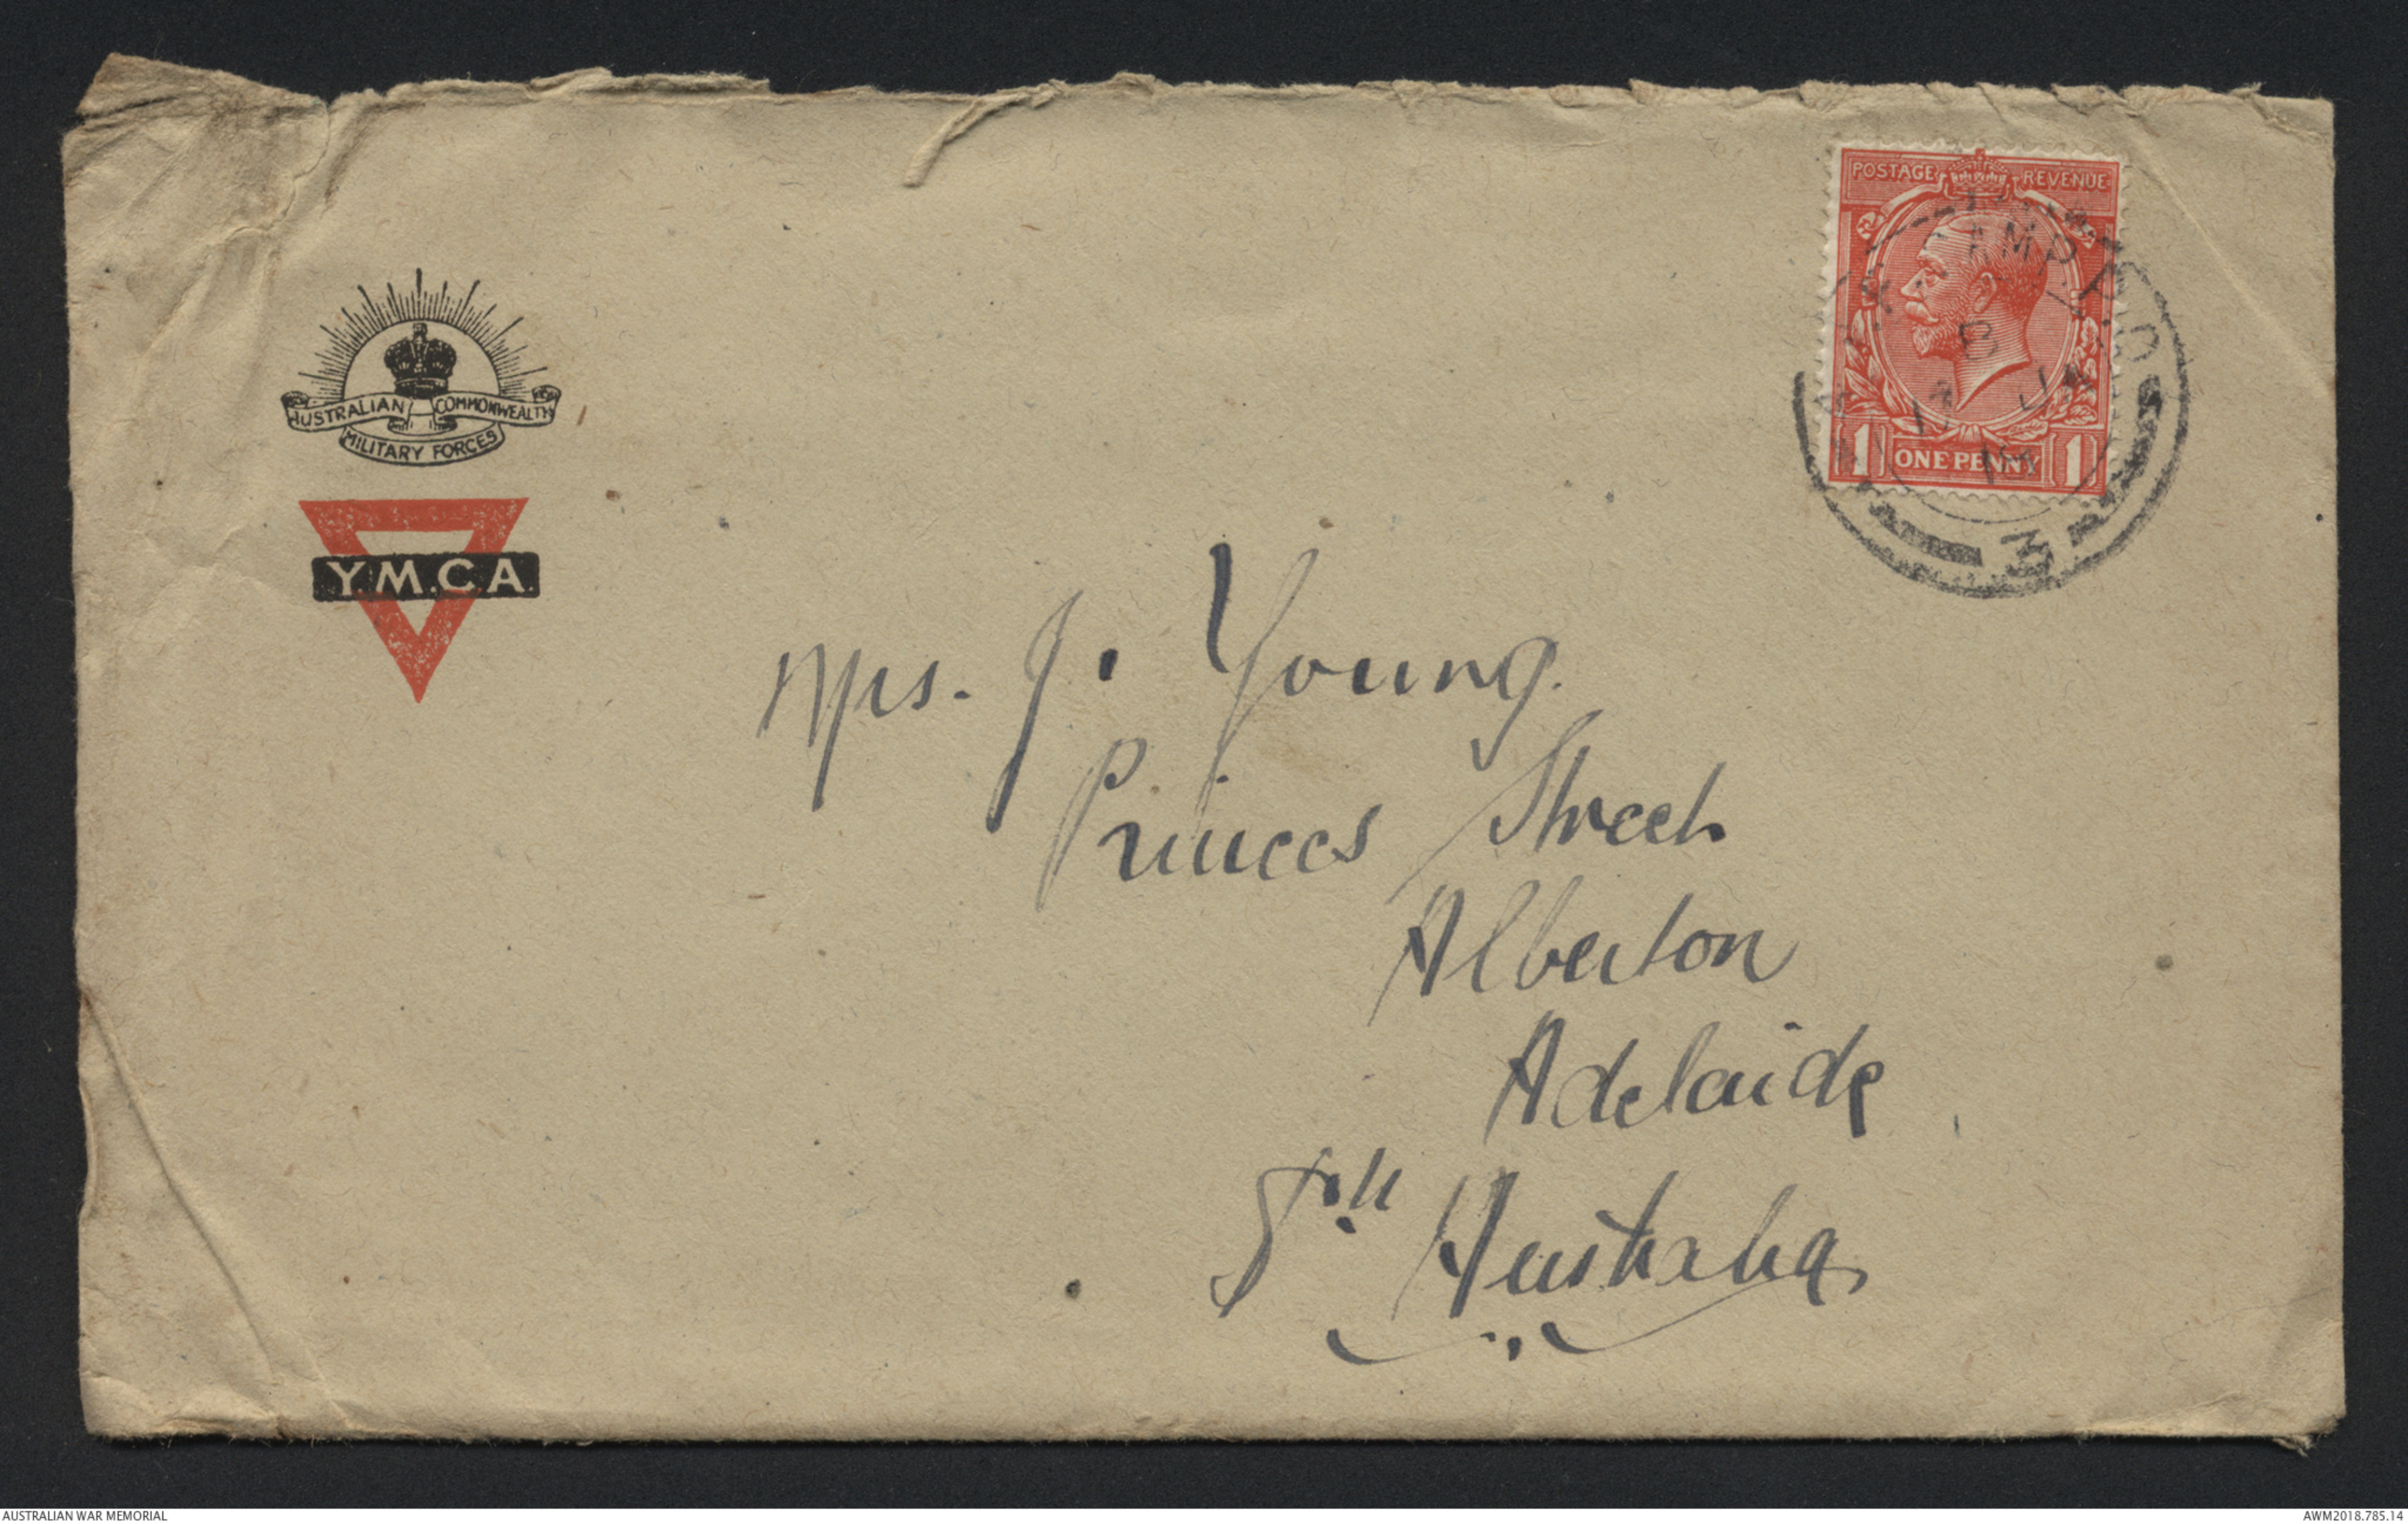 POSTAGE REVENUE
AMP P.O
B
17 JA
18
3
1 ONE PENNY 1
AUSTRALIAN COMMONWEALTH
MILITARY FORCES
Y.M.C.A.
Mrs. J. Young.
Princes Street
Alberton
Adelaide
Sth Australia
AUSTRALIAN WAR MEMORIAL
AWM2018.785.14